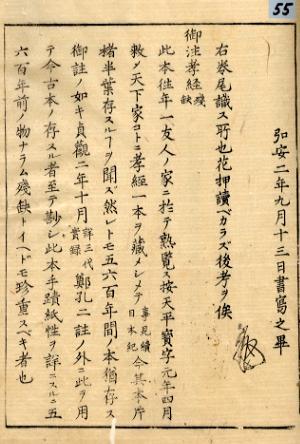 55
弘安二年九月十三日書寫之畢
右巻尾識ス所也花押讀ベカラズ後考ヲ俟
御注孝経 残缺
此本往年一友人ノ家ニ於テ熟覧ス按天平寳字元年四月
敕メ天下家コトニ孝經一本ヲ藏メシメテ 事見續日本紀 今其本片
楮半葉存スルヿヲ聞ズ然レトモ五六百年間ノ本猶存ス
御註ノ如キ貞觀二年十月 詳三代實録 鄭孔二註ノ外ニ此ヲ用
テ今古本ノ存スル者至テ尠シ此本手蹟紙性ヲ詳ニスルニ五
六百年前ノ物ナラム殘缺トイヘドモ珍重スベキ者也